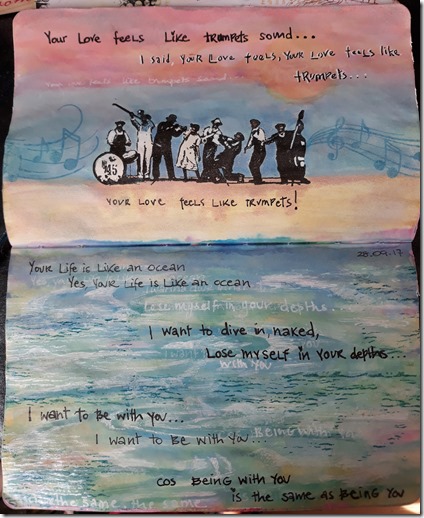 Your Love feels Like trumpets sound...
I said your Love fuels, your Love feels like
trumpets...
trumpets sound...
your Love feels Like trumpets!
28.09.17
Your Life is Like an ocean
Yes your Life is Like an ocean
Lose myself in your depths.
I want to dive in, naked,
Lose myself in your depths...
with you
I want to be with you...
I want to be with you...
Being with you
cos Being with you
is the same as Being you
the same. the same